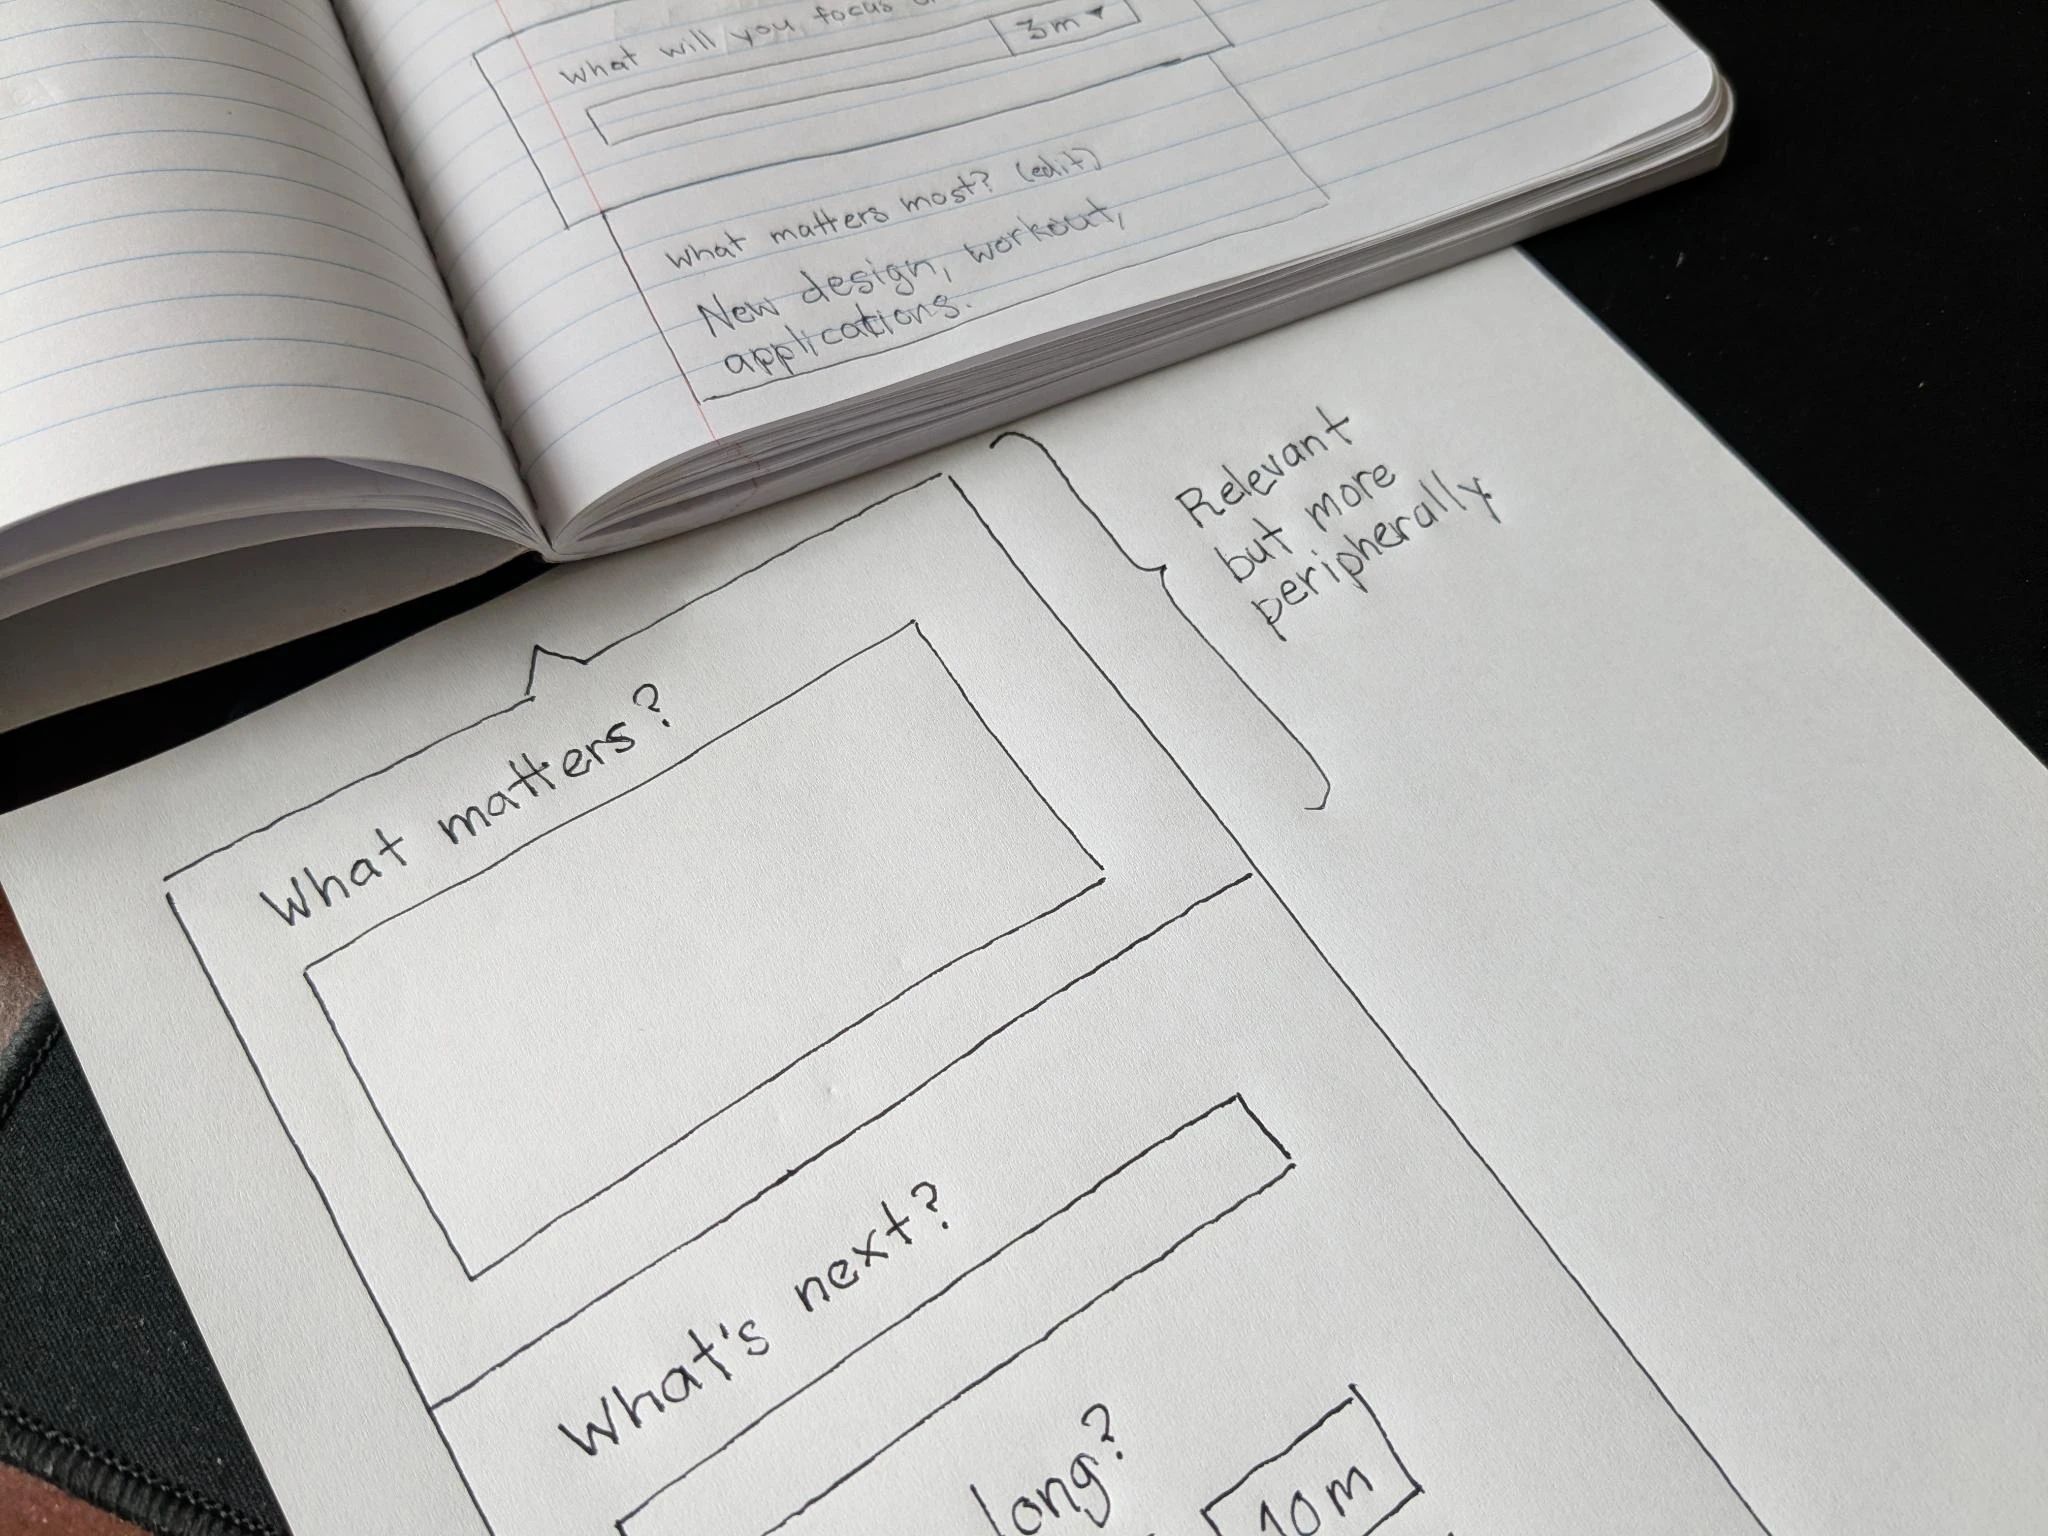 What will you focus
3m ▾
What matters most? (edit)
New design, workout,
applications.
Relevant
but more
peripherally
What matters?
What's next?
long?
10m